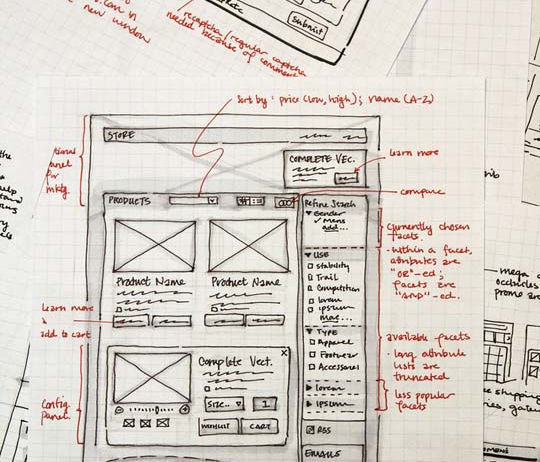 new window
recaptcha/regular captcha
needed because of comment
Submit
Sort by: price (low, high); name (A-Z)
STORE
COMPLETE VEC.
learn more
compare
PRODUCTS
Refine Search
Gender
✓ Mens
add...
currently chosen
facets.
USE
Stability
Trail
Competition
lorem
ipsum
more...
· within a facet,
attributes are
"OR"-ed;
facets are
"AND"-ed.
Product Name
Product Name
learn more
&
add to cart
TYPE
Apparel
Footwear
Accessories
available facets
· long attribute
lists are
truncated
Complete Vect.
X
SIZE..
1
WISHLIST
CART
Config.
panel.
lorem
ipsum
less popular
facets
RSS
EMAILS
mega
shipping